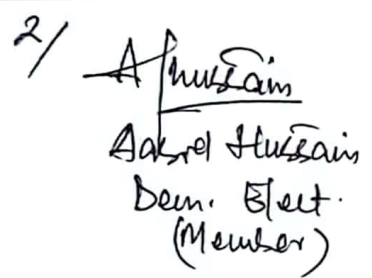 2/
AHussain
Aabid Hussain
Dem. Elect.
(Member)